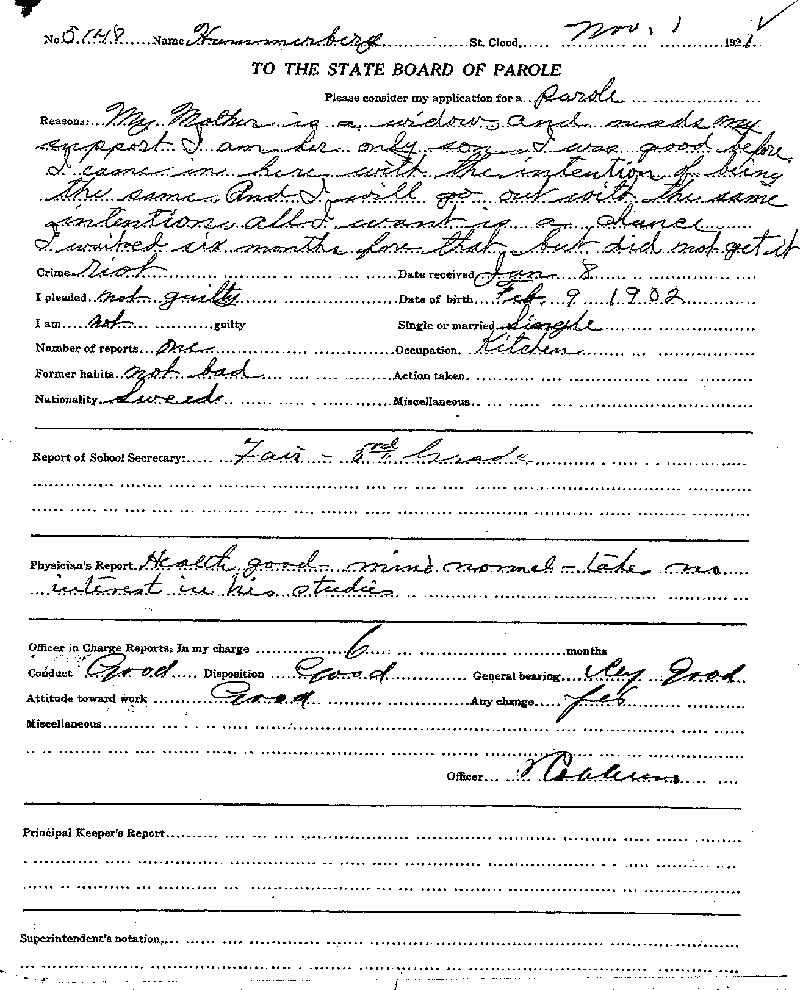 No 5148 Name Hammerberg St. Cloud, Nov. 1 1921
TO THE STATE BOARD OF PAROLE
Please consider my application for a parole
Reasons: My Mother is a widow, and needs my
support I am her only son. I was good before
I came in here with the intention of being
the same. And I will go out with the same
intentions, all I want is a chance
I waited six months fore that, but did not get it
Crime riot Date received Jan 8
I pleaded not guilty Date of birth Feb. 9 1902
I am not guilty Single or married Single
Number of reports one Occupation. Kitchen
Former habits not bad Action taken
Nationality Swede Miscellaneous
Report of School Secretary: Fair - Grade
Physician's Report Health good - mind normal - takes no
interest in his studies
Officer in Charge Reports: In my charge 6 months
Conduct Good Disposition Good General bearing Very Good
Attitude toward work Good Any change yes
Miscellaneous
Officer
Principal Keeper's Report
Superintendent's notation,